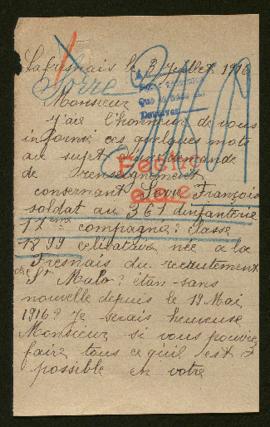 Lafresnais le 2 Juillet 1916
Sorre
Monsieur
j'ai l'honneur de vous
informé ces quelques mots
au sujet demande
de renseignement
consernant Sorre François
soldat au 361 dinfanterie
17eme compagnie: classe
1899 celibataire née a la
Fresnais du recrutement
de St Malo: étan sans
nouvelle depuis le 18 Mai
1916? je serais heureuse
Monsieur si vous pouviez
faire tous ce quil est
possible en votre